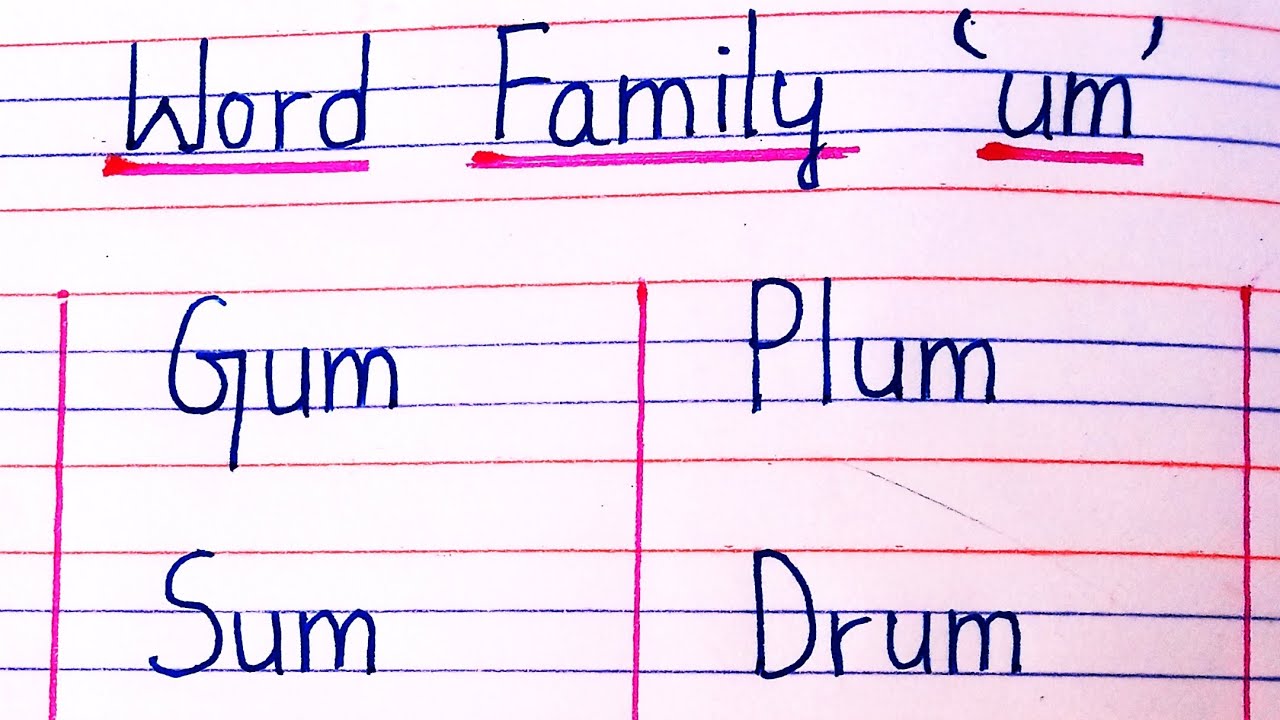 Word Family 'um'
Gum Plum
Sum Drum